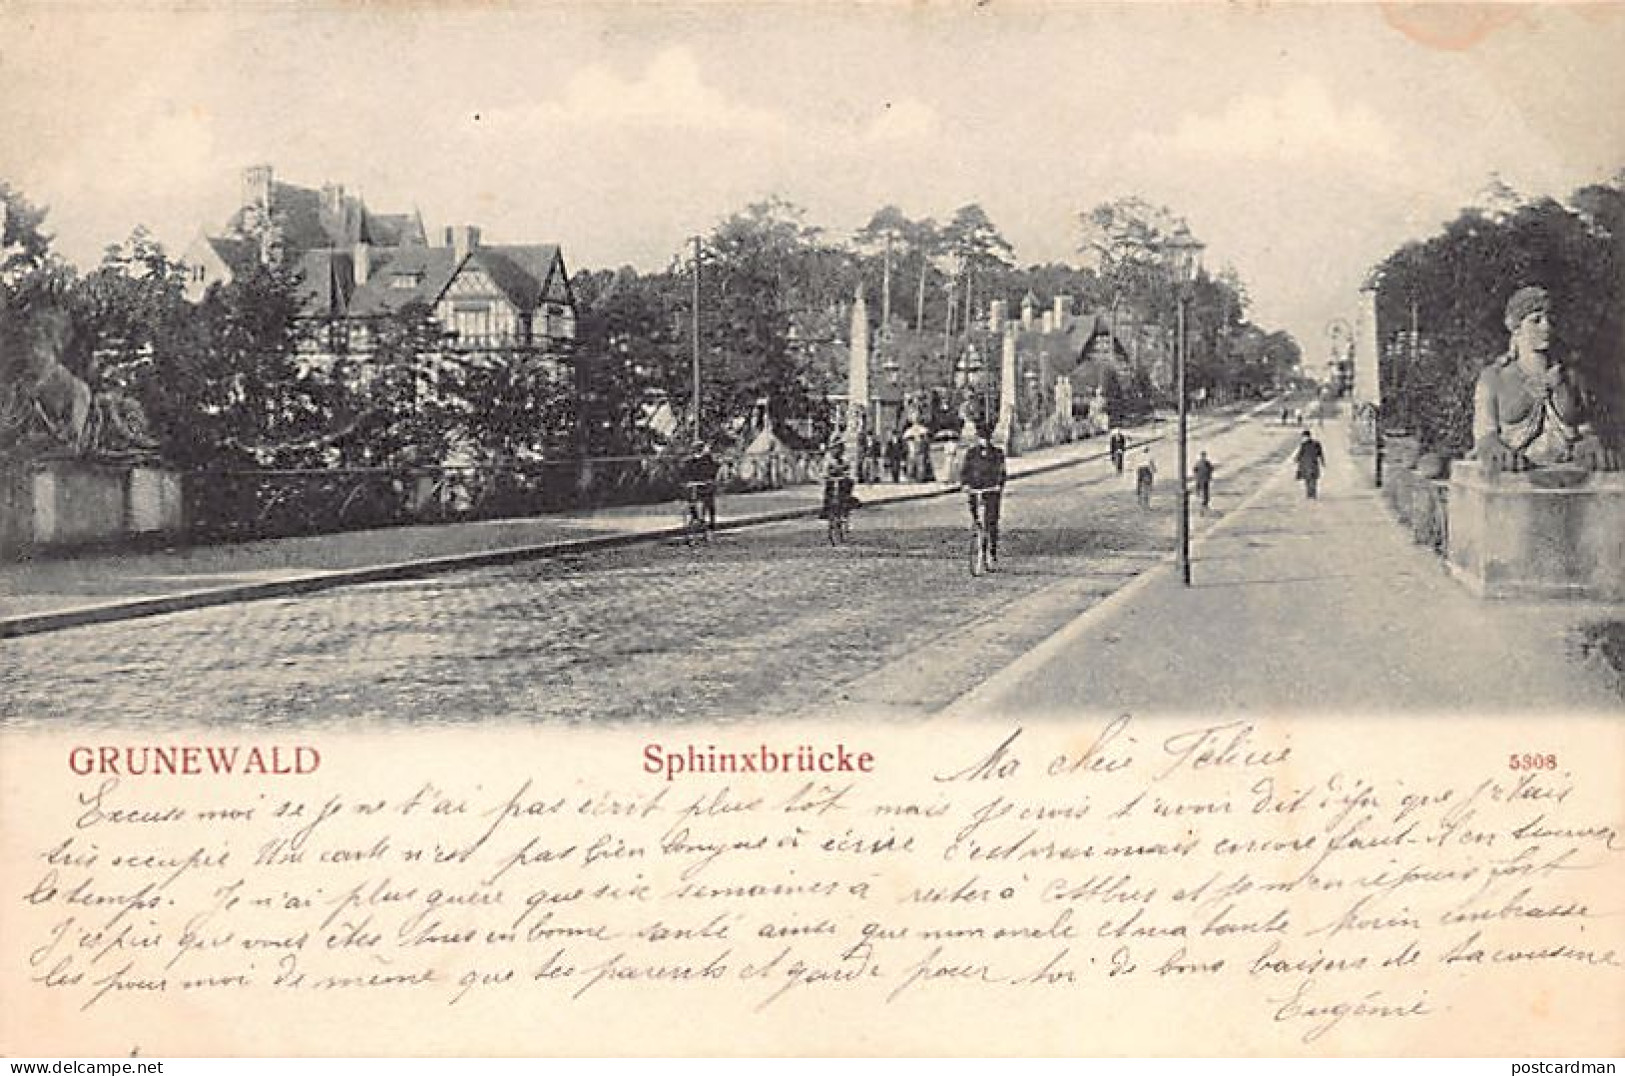 GRUNEWALD Sphinxbrücke 5308
Ma chère Félicie
Excuse moi si je ne t'ai pas écrit plus tôt mais je crois t'avoir dit déjà que j'étais
très occupée Une carte n'est pas bien longue à écrire c'est vrai mais encore faut-il en trouver
le temps. Je n'ai plus guère que six semaines à rester à et je m'en réjouis fort
J'espère que vous êtes tous en bonne santé ainsi que mon oncle et ma tante Morin embrasse
les pour moi de même que tes parents et garde pour toi de bons baisers de ta cousine
Eugénie.
Delcampe.net
postcardman